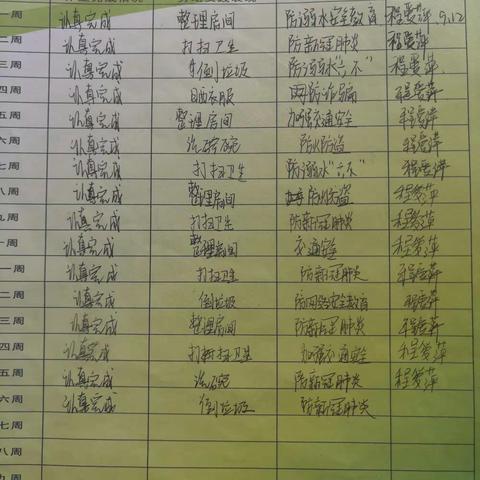 一周 认真完成 整理房间 防溺水安全教育 程爱萍 9.12
二周 认真完成 打扫卫生 防新冠肺炎 程爱萍
三周 认真完成 倒垃圾 防溺水"六不" 程爱萍
四周 认真完成 晒衣服 防诈骗 程爱萍
五周 认真完成 整理房间 加强交通安全 程爱萍
六周 认真完成 洗碗 防火防盗 程爱萍
七周 认真完成 打扫卫生 防溺水"六不" 程爱萍
八周 认真完成 整理房间 防火防盗 程爱萍
九周 认真完成 打扫卫生 防新冠肺炎 程爱萍
一周 认真完成 整理房间 交通安全 程爱萍
一周 认真完成 打扫卫生 防新冠肺炎 程爱萍
二周 认真完成 倒垃圾 防网络安全教育 程爱萍
三周 认真完成 整理房间 防新冠肺炎 程爱萍
四周 认真完成 打扫卫生 加强交通安全 程爱萍
五周 认真完成 洗碗 防新冠肺炎 程爱萍
六周 认真完成 倒垃圾 防新冠肺炎
七周
八周
九周